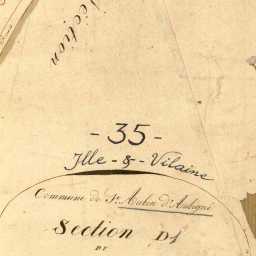 Section
- 35 -
Ille - & - Vilaine
Commune de St. Aubin d'Aubigné
Section D1
DE